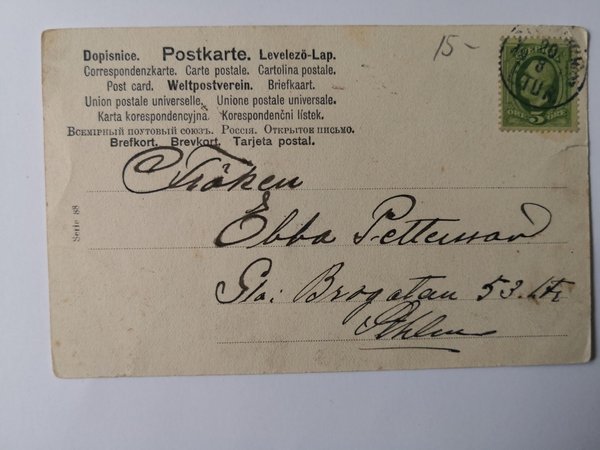 15-
Dopisnice. Postkarte. Levelező-Lap.
Correspondenzkarte. Carte postale. Cartolina postale.
Post card. Weltpostverein. Briefkaart.
Union postale universelle. Unione postale universale.
Karta korespondencyjna. Korespondenční lístek.
Всемірный почтовый союзъ. Россія. Открытое письмо.
Brefkort. Brevkort. Tarjeta postal.
Serie 88
20
8
TUR
ÖRE 5 ÖRE
Fröken
Ebba Pettersson
Gla: Brogatan 53.
Sthlm